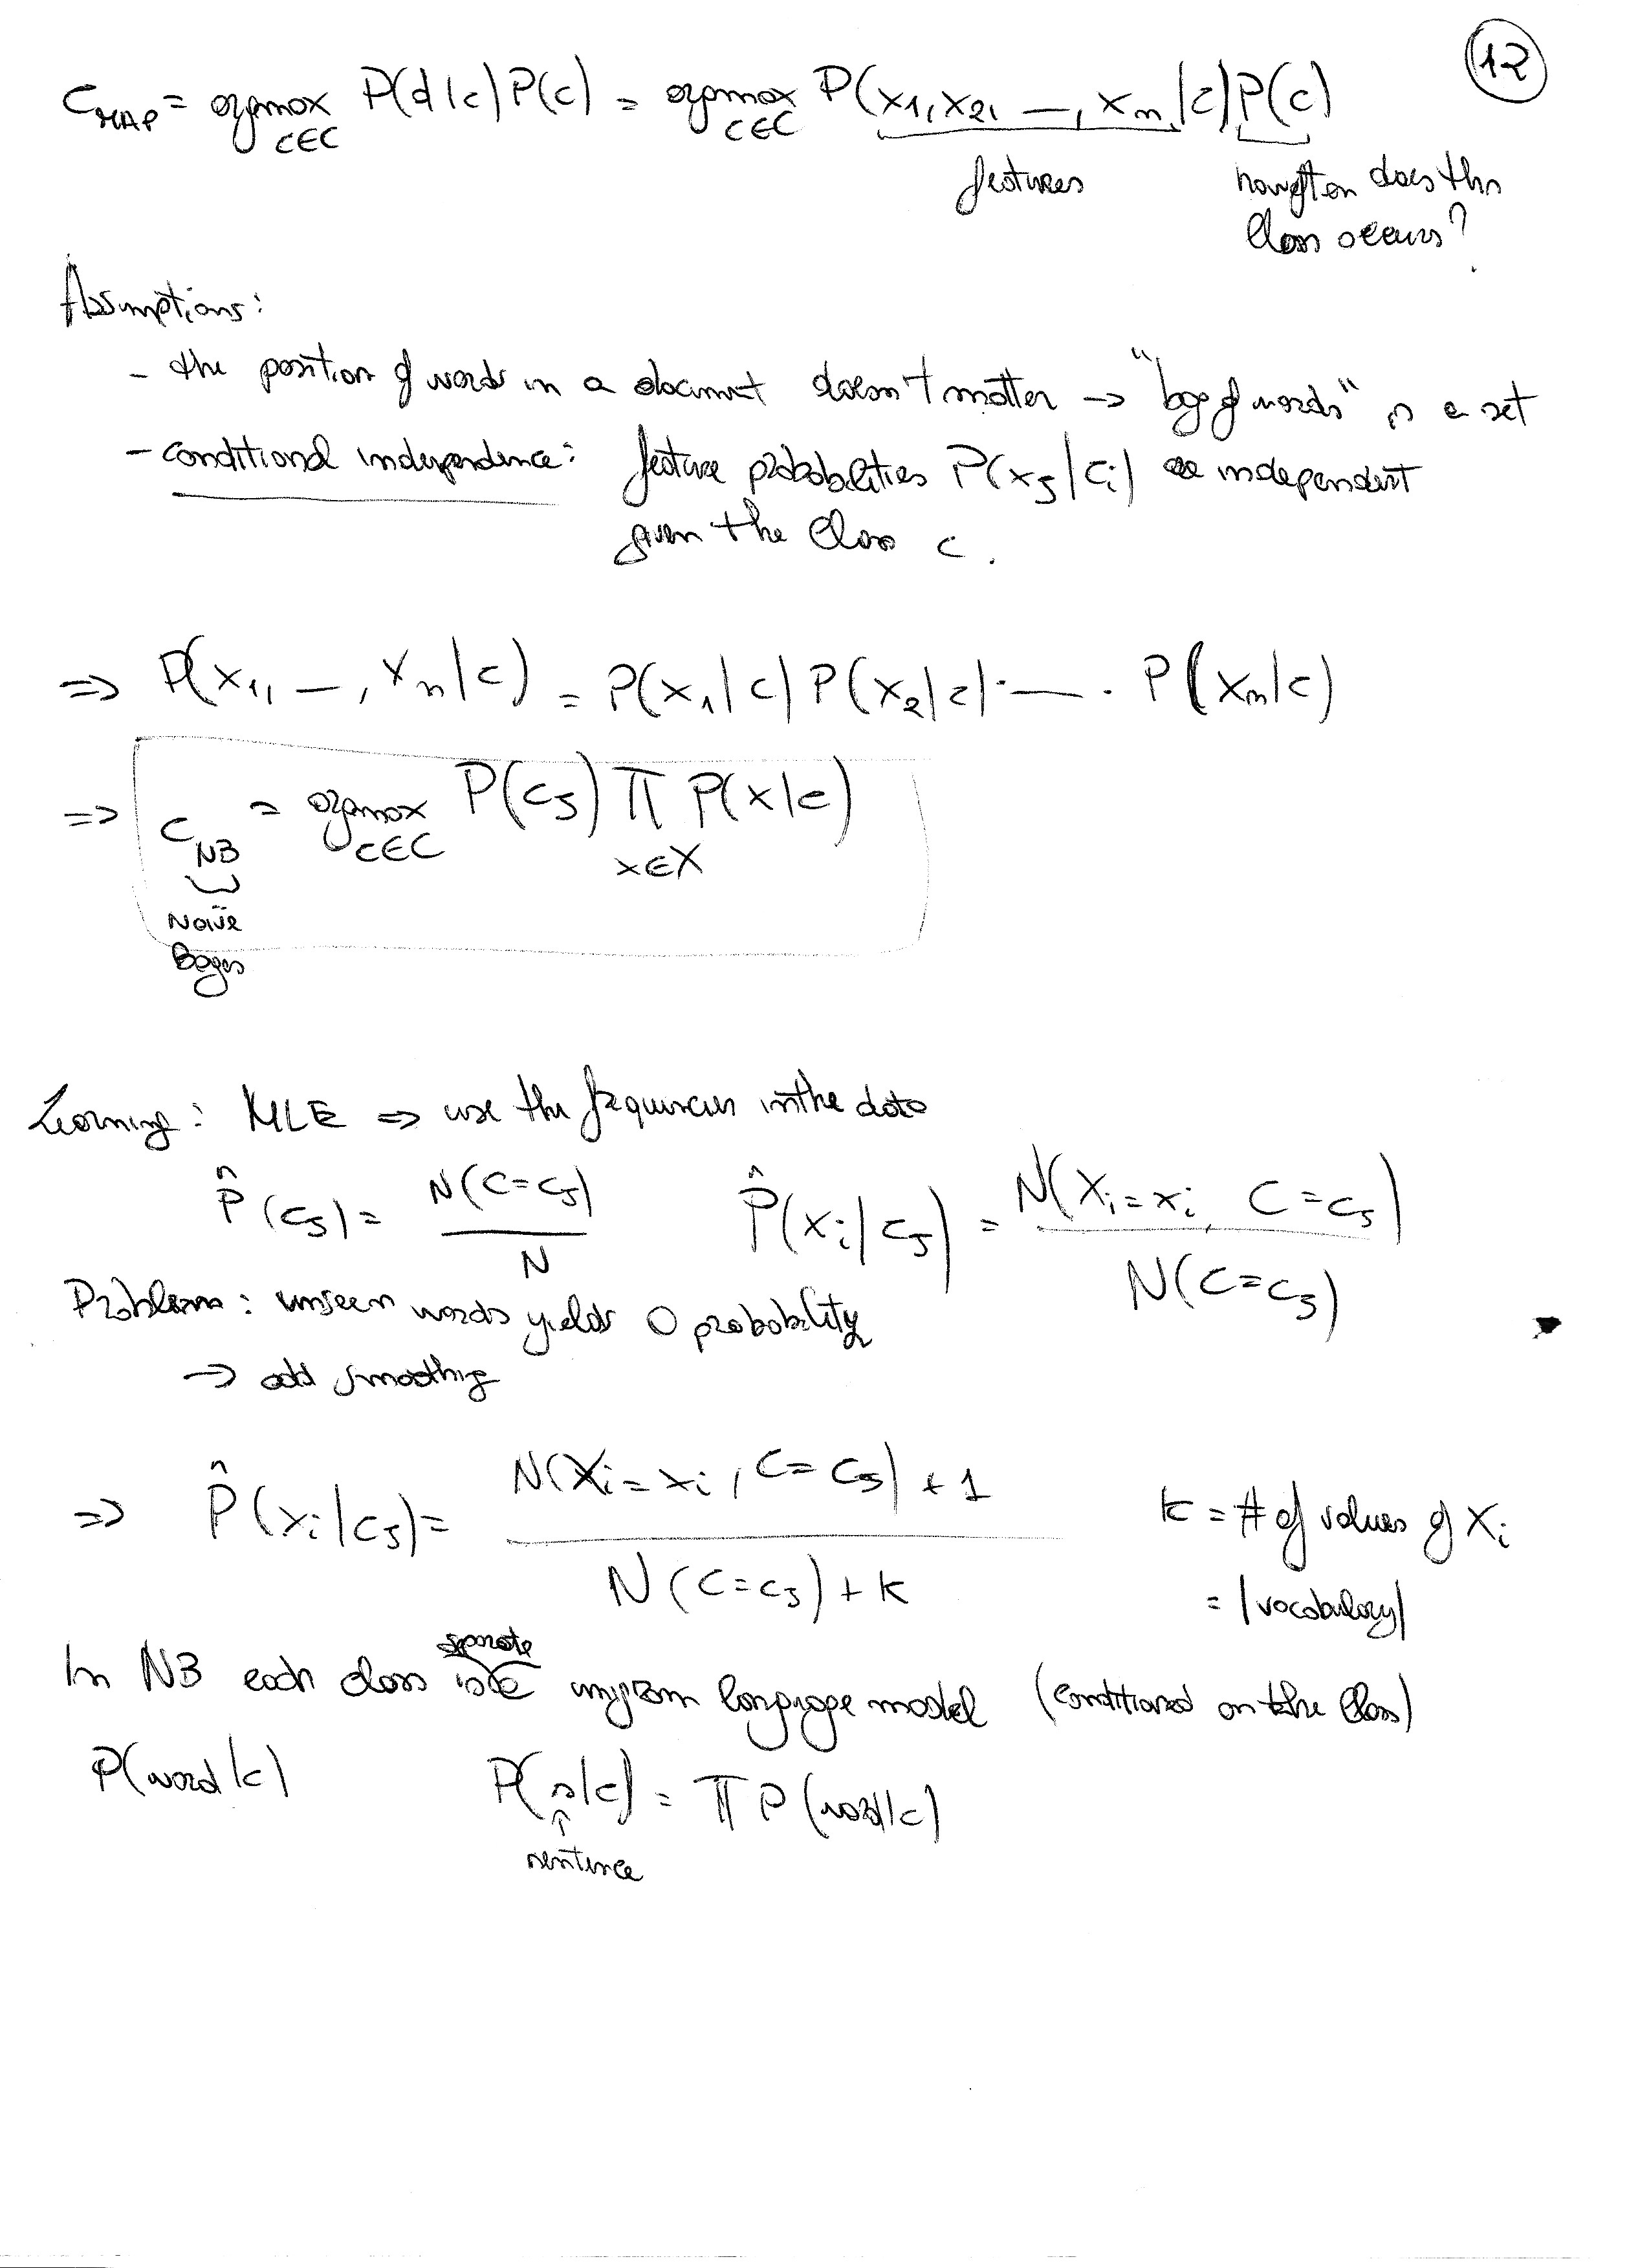 12
C_MAP = argmax_{c∈C} P(d|c) P(c) = argmax_{c∈C} P(x1, x2, —, xn|c) P(c)
features
how often does this
class occurs?
Assumptions:
- the position of words in a document doesn't matter → "bag of words" is a set
- conditional independence: feature probabilities P(x_j|c_i) are independent
given the class c.
⇒ P(x1, —, xn|c) = P(x1|c) P(x2|c) · — · P(xn|c)
⇒ C_NB = argmax_{c∈C} P(c_j) Π_{x∈X} P(x|c)
Naïve
Bayes
Learning: MLE ⇒ use the frequencies in the data
P̂(c_j) = N(C=c_j) / N    P̂(x_i|c_j) = N(X_i=x_i, C=c_j) / N(C=c_j)
Problem: unseen words yields 0 probability
→ add smoothing
⇒ P̂(x_i|c_j) = N(X_i=x_i, C=c_j) + 1 / N(C=c_j) + k    k = # of values of X_i
= |vocabulary|
In NB each class is a separate unigram language model (conditioned on the class)
P(word|c)    P(s|c) = Π P(word|c)
↑
sentence